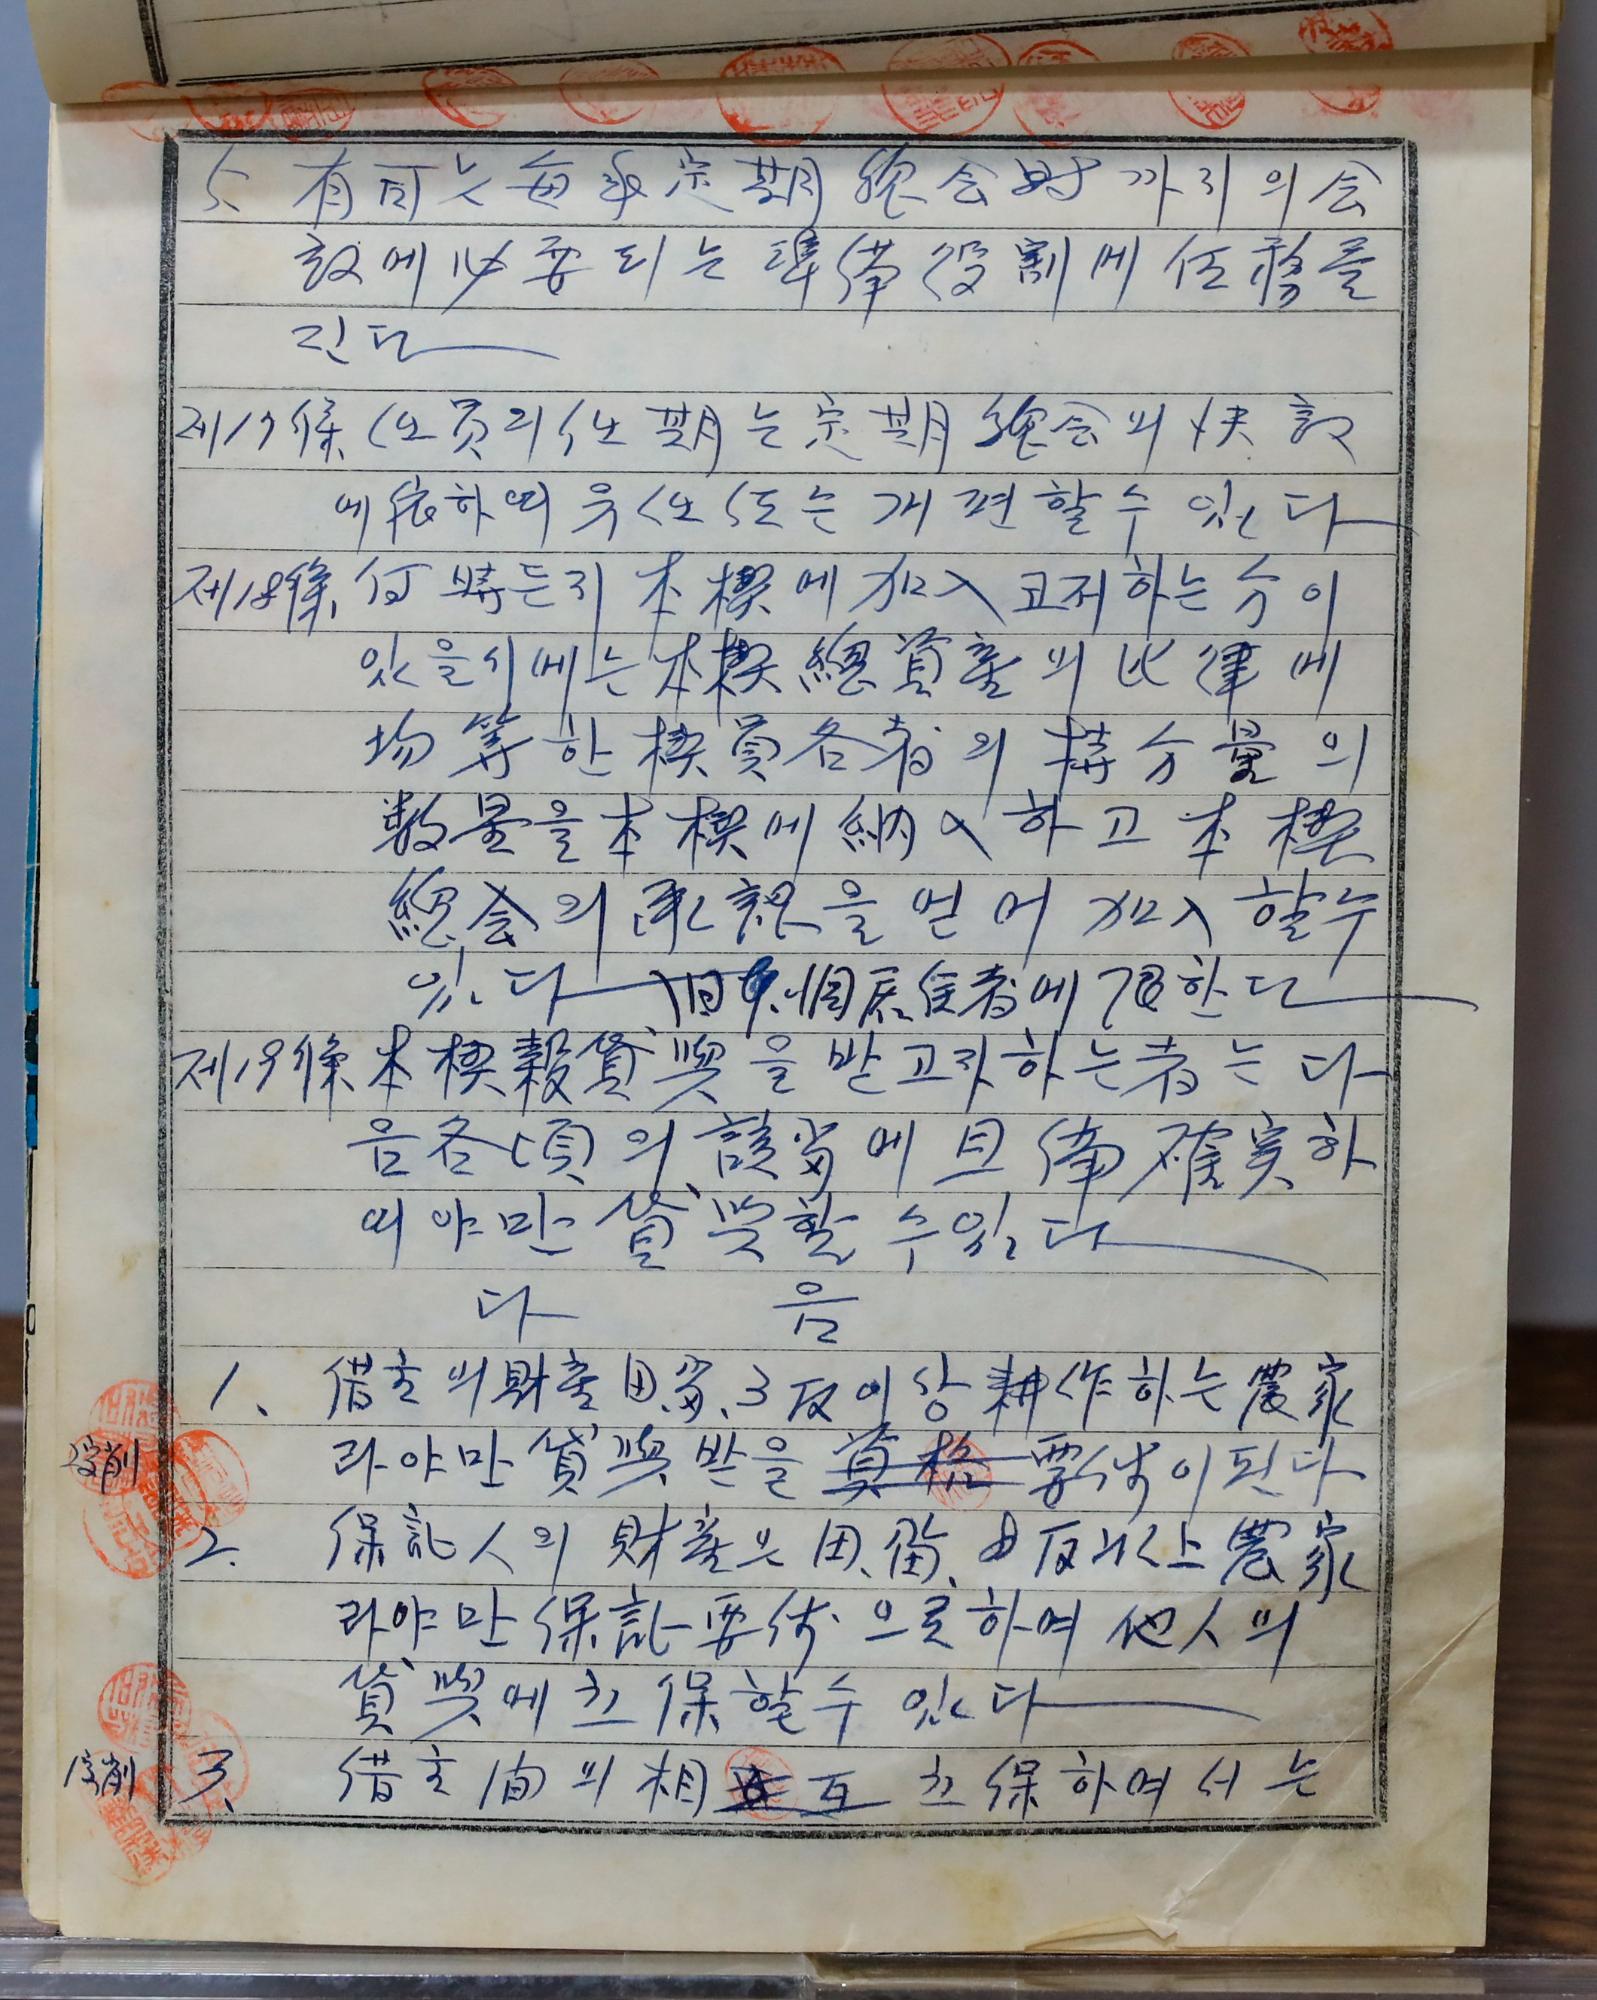 5. 有司는 每年 定期 總会 時까지의 会
議에 必要되는 準備役割에 任務를
진다
제17條 任員의 任期는 定期 總会의 決議
에 依하여 유任 또는 개편할 수 있다
제18條 何時든지 本楔에 加入코저하는 分이
있을시에는 本楔 總資産의 比律에
均等한 楔員各者의 持分量의
数量을 本楔에 納入하고 本楔
總会의 承認을 얻어 加入할수
있다 洞居住者에 限한다
제19條 本楔穀貸與을 받고자하는者는 다
음各項의 該當에 具備 確実하
여야만 貸與할 수있다
다 음
1. 借主의 財産 田.畓.3反이상 耕作하는 農家
라야만 貸與받을 資格 要件이 된다
2. 保証人의 財産은 田.畓. 反以上 農家
라야만 保証要件으로하며 他人의
貸與에 立保할수 있다
3. 借主间의 相互 立保하여서는